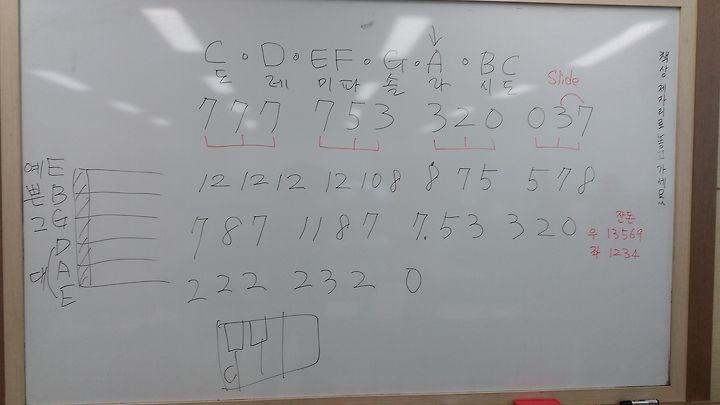 C • D • E F • G • A • B C
도 레 미 파 솔 라 시 도
Slide
7 7 7 7 5 3 3 2 0 0 3 7
12 12 12 12 10 8 8 7 5 5 7 8
7 8 7 11 8 7 7. 5 3 3 2 0
2 2 2 2 3 2 0
예 E
쁜 B
그 G
D
대 A
E
C
잔돈
우 13569
좌 1234
책상 제자리로 놓고 가세요